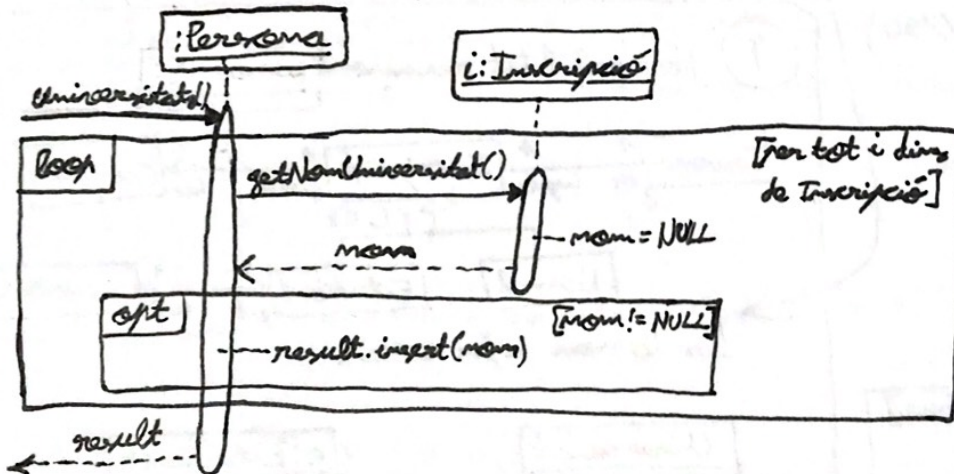 :Persona
i:Inscripció
Universitats()
loop
[per tot i dins
de Inscripció]
getNomUniversitat()
nom = NULL
nom
opt
[nom != NULL]
result.insert(nom)
result